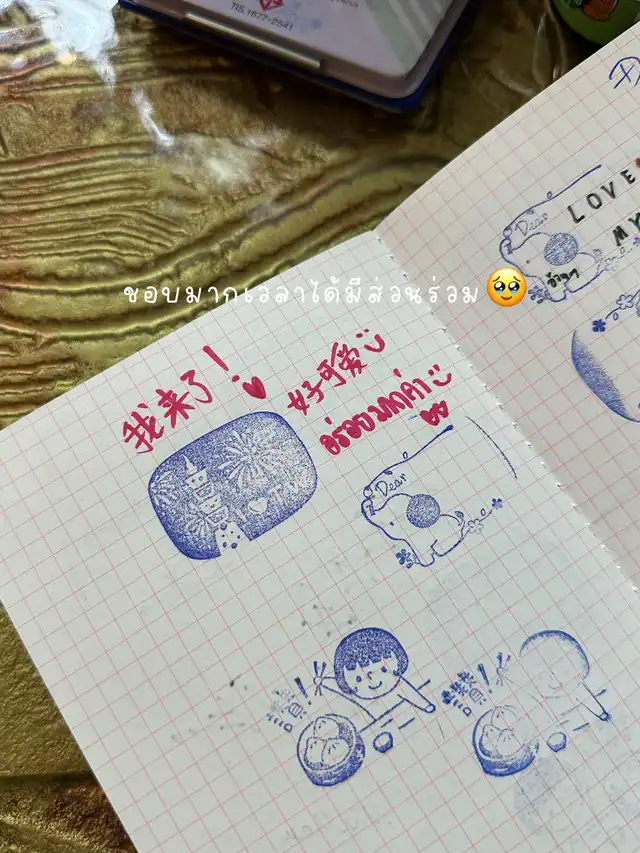 TIS.1677-2541
ชอบมากเวลาได้มีส่วนร่วม🥹
Dear
LOVE
MY
我来了!
好可爱
อร่อยมากค่า
Dear
讚!
讚!